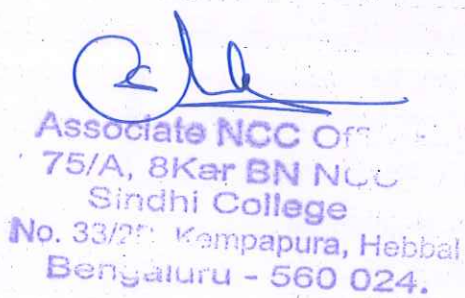 Associate NCC
75/A, 8Kar BN
Sindhi College
No. Kempapura, Hebbal
Bengaluru - 560 024.